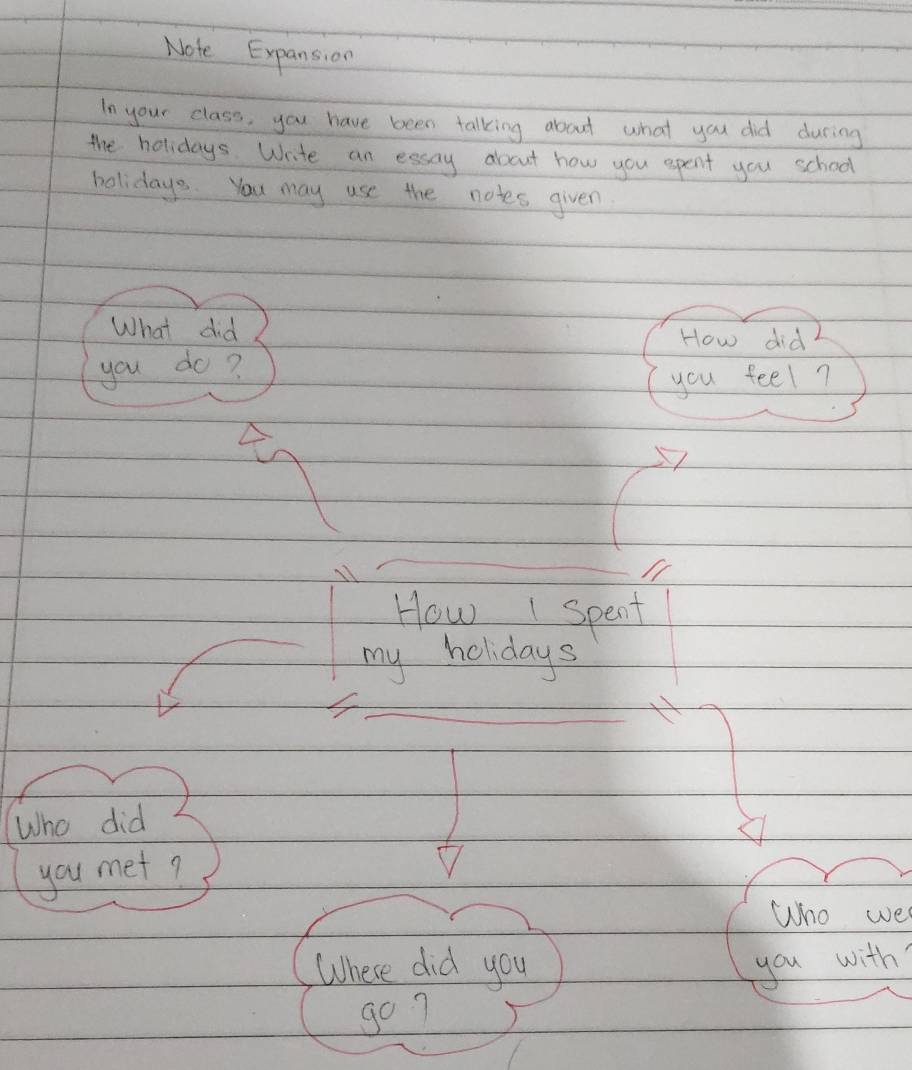 Note Expansion
In your class, you have been talking about what you did during
the holidays. Write an essay about how you spent you school
holidays. You may use the notes given.
What did
you do?
How did
you feel?
How I spent
my holidays
Who did
you met?
Where did you
go?
Who
you with?